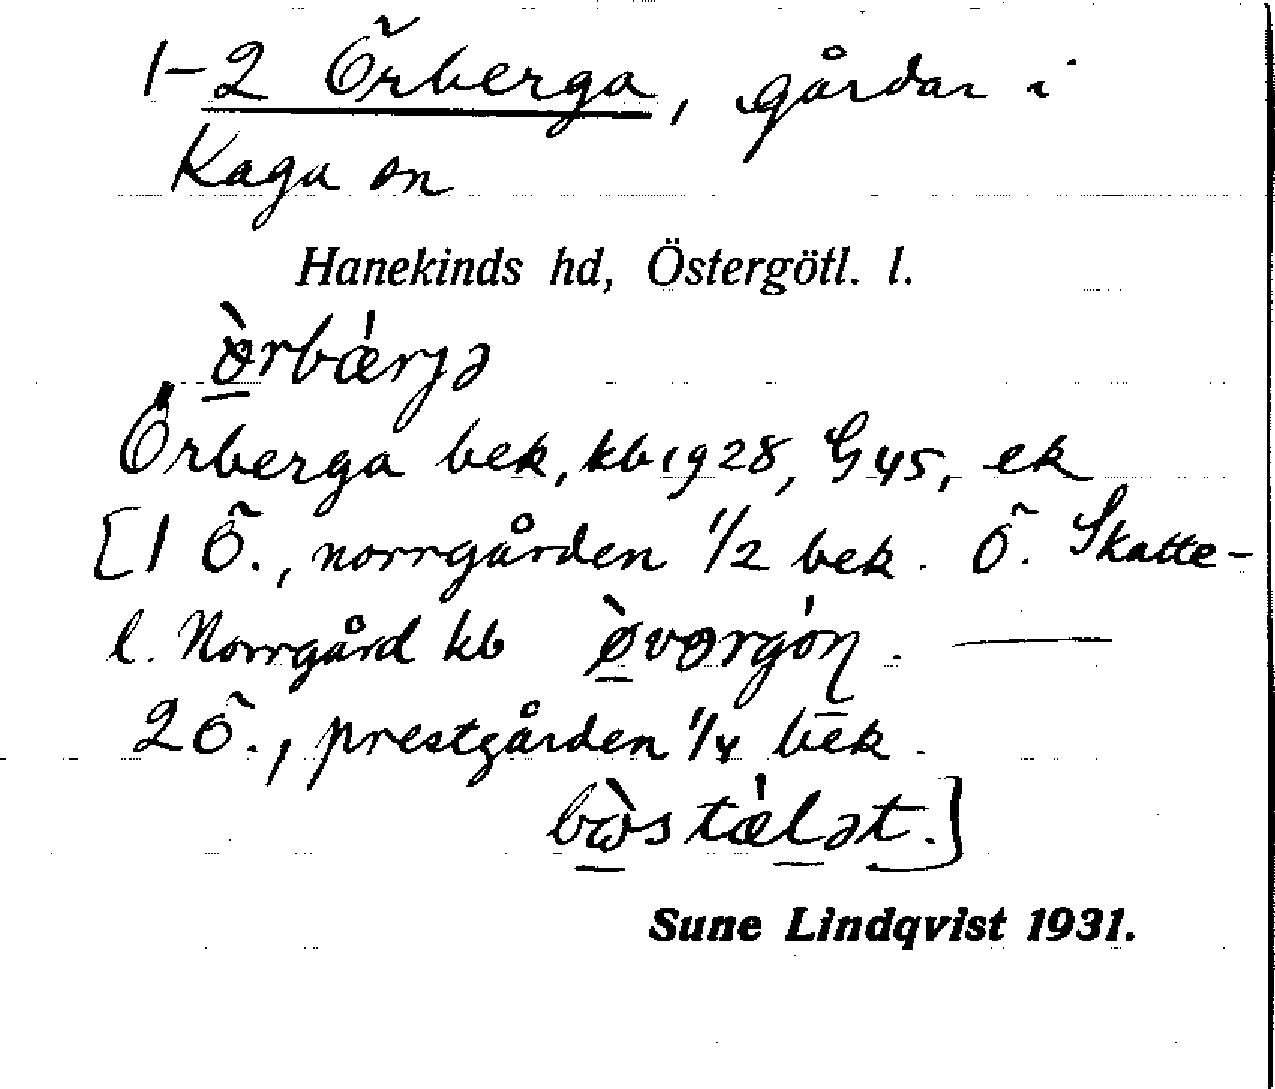 1-2 Örberga, gårdar i
Kaga sn
Hanekinds hd, Östergötl. l.
ö̀rbǽrjə
Örberga bek, kb 1928, G 45, ek
[1 Ö., norrgården 1/2 bek. Ö. Skatte-
l. Norrgård kb ø̀vərgóɳ. —
2 Ö., prestgården 1/4 bek.
bὼstǽlət.]
Sune Lindqvist 1931.